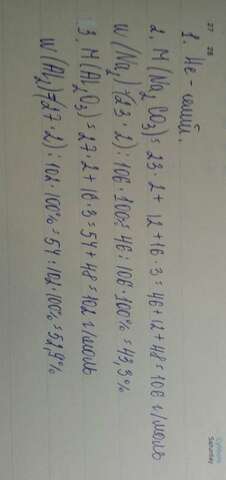 27 28
Суббота
Saturday
1. Не - гелий.
2. M(Na₂CO₃)=23·2+12+16·3=46+12+48=106 г/моль
w(Na₂)=(23·2):106·100%=46:106·100%=43,3%
3. M(Al₂O₃)=27·2+16·3=54+48=102 г/моль
w(Al₂)=(27·2):102·100%=54:102·100%=52,9%